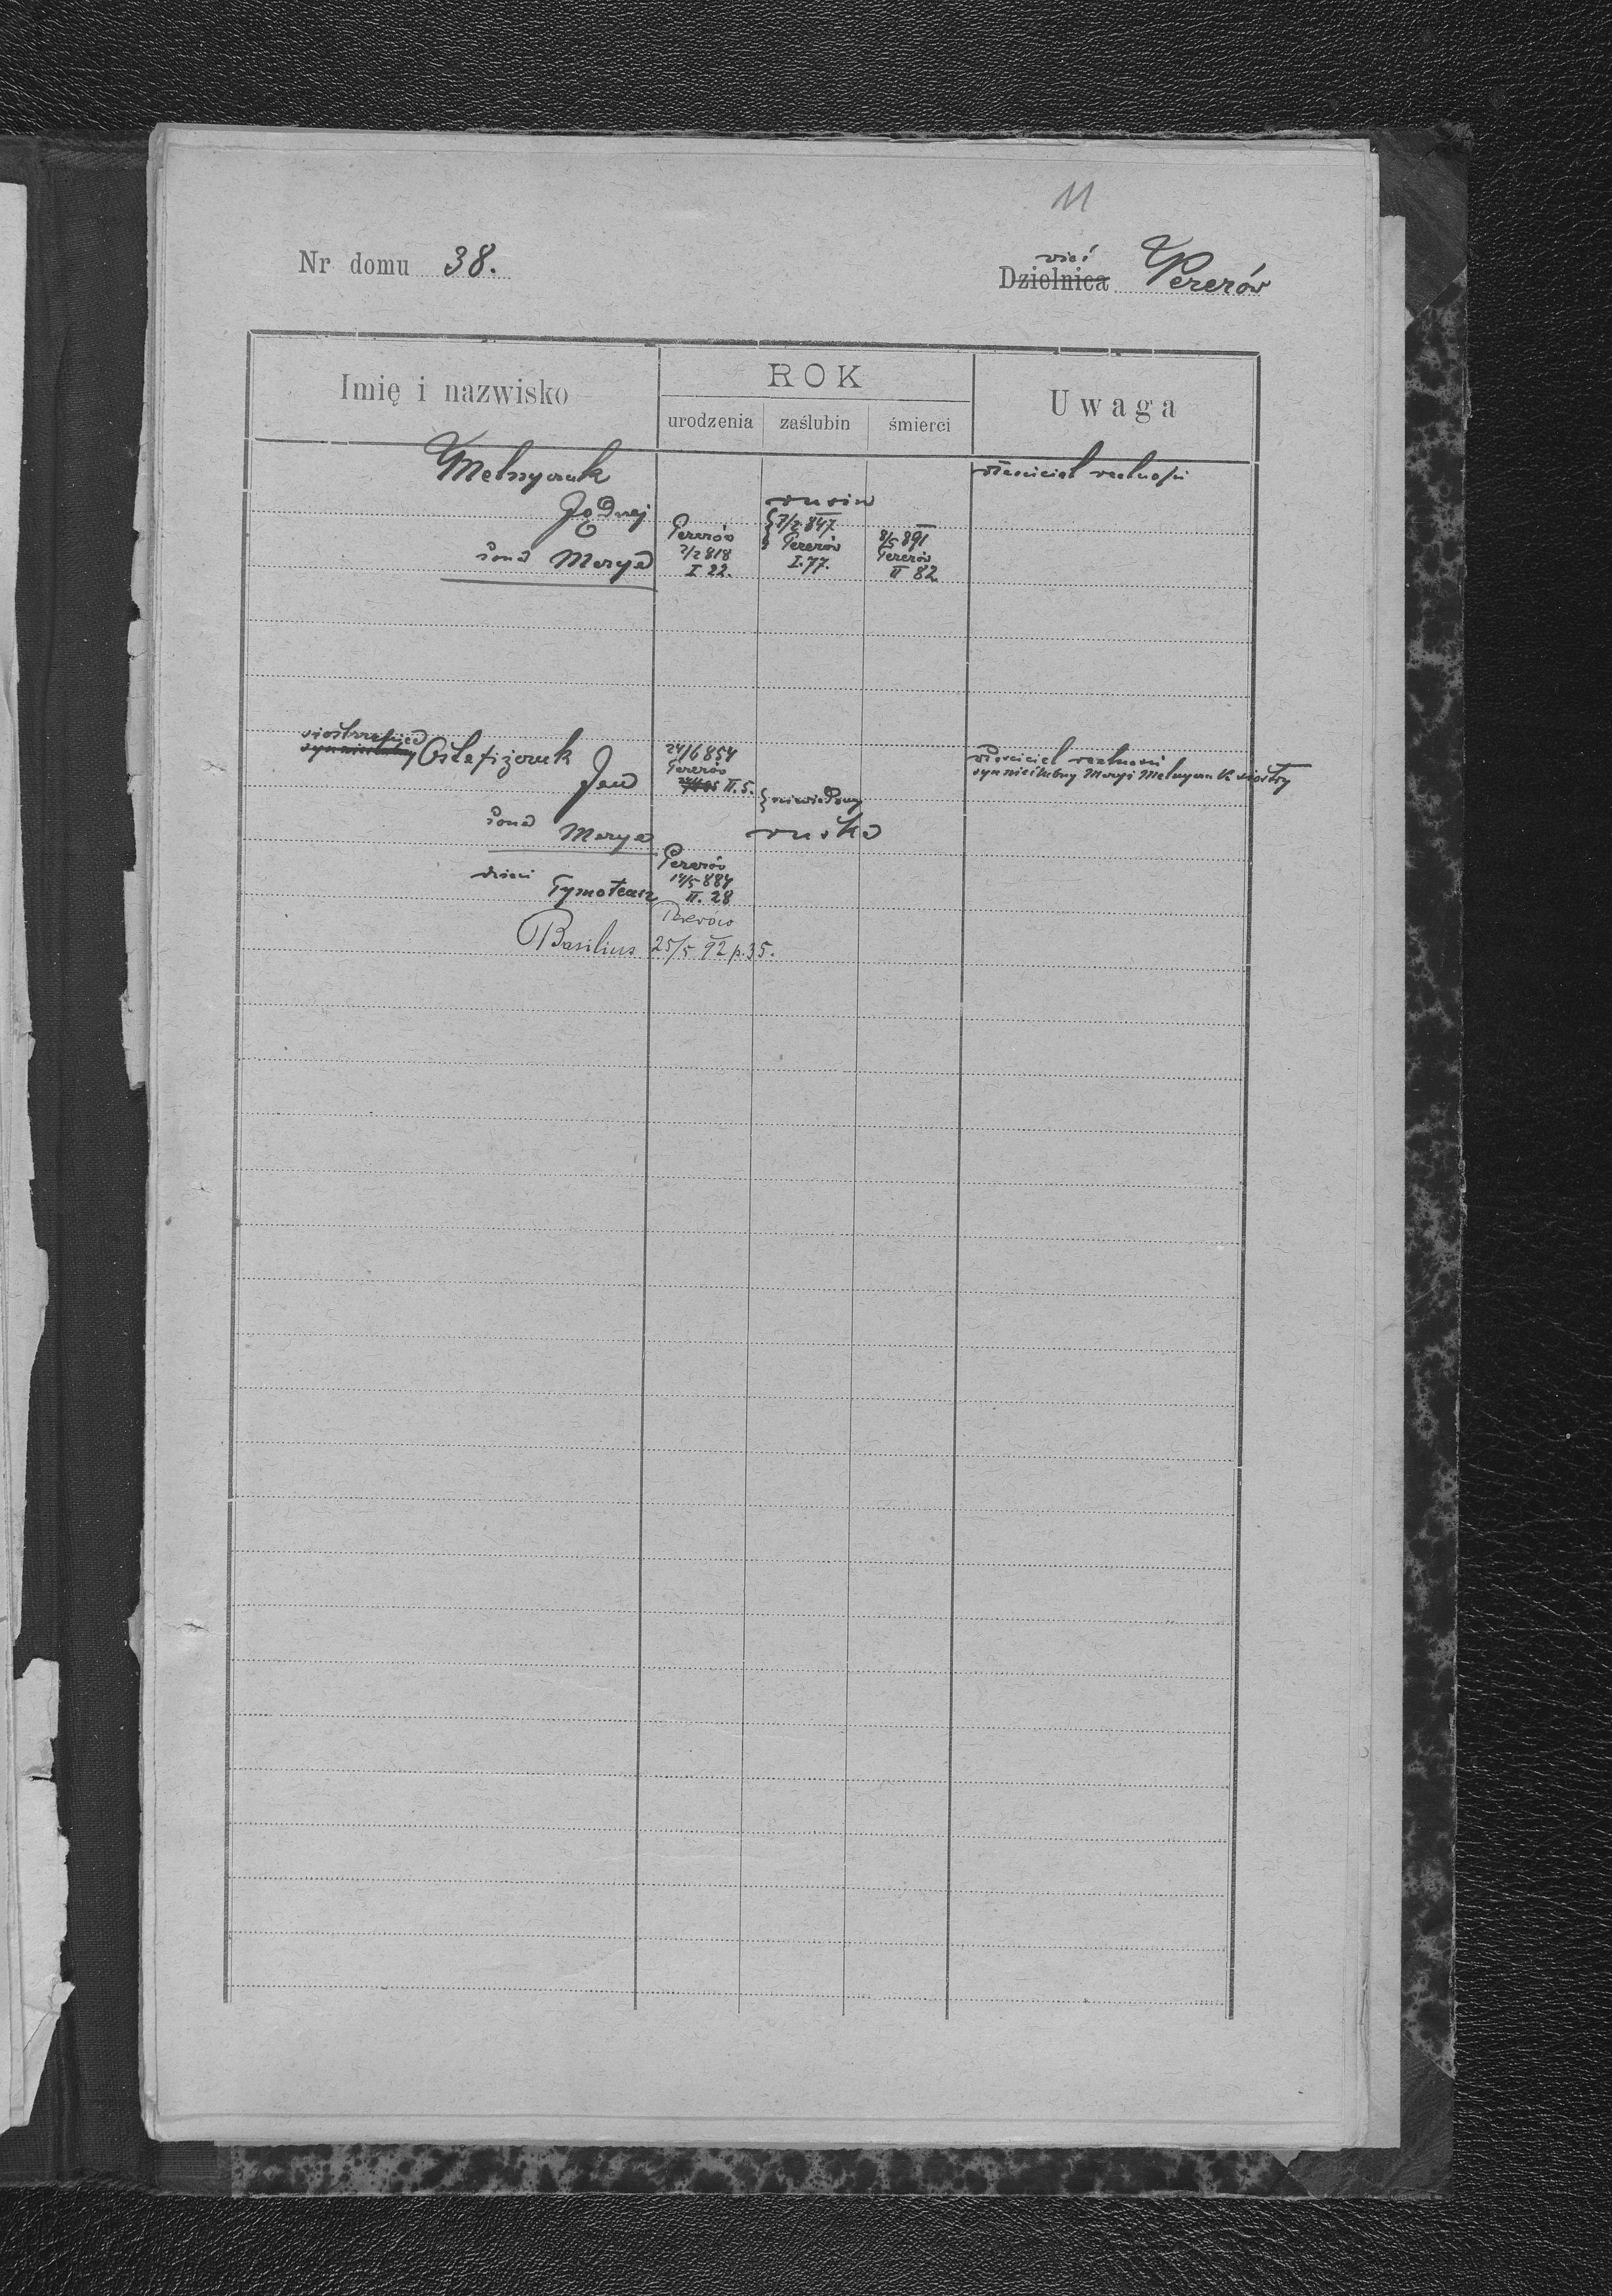 11
Nr domu 38.
wieś
Dzielnica Perерów
Imię i nazwisko
ROK
urodzenia zaślubin śmierci
Uwaga
Melnyczuk właściciel realności
Jędrzej rusin
żona Marya Pererów 7/2 818 I 22. 7/2 847 Pererów I. 77. 8/5 891 Pererów II 82
siostrzeniec
syn nieślubny Ostafijczuk 24/6 854 właściciel realności
Jan Pererów II. 5. syn nieślubny Maryi Melnyczuk siostry
niewiadomy
żona Marya ruska
Pererów
dzieci Tymoteusz 14/5 884
II. 28
Pererów
Basilius 25/5 92 p. 35.